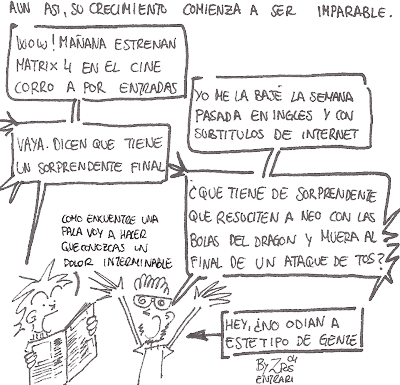 AUN ASI, SU CRECIMIENTO COMIENZA A SER IMPARABLE.
¡WOW! MAÑANA ESTRENAN
MATRIX 4 EN EL CINE
CORRO A POR ENTRADAS
YO ME LA BAJÉ LA SEMANA
PASADA EN INGLES Y CON
SUBTITULOS DE INTERNET
VAYA. DICEN QUE TIENE
UN SORPRENDENTE FINAL
¿QUE TIENE DE SORPRENDENTE
QUE RESUCITEN A NEO CON LAS
BOLAS DEL DRAGON Y MUERA AL
FINAL DE UN ATAQUE DE TOS?
COMO ENCUENTRE UNA
PALA VOY A HACER
QUE CONOZCAS UN
DOLOR INTERMINABLE
HEY, ¿NO ODIAN A
ESTE TIPO DE GENTE
By
04
ENTRARI